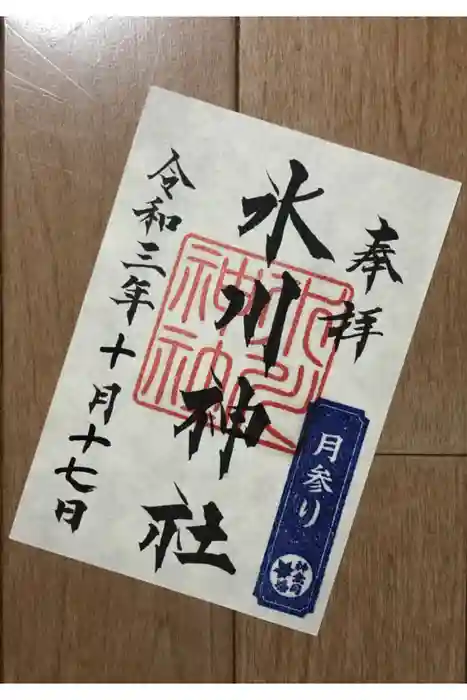 奉拝
氷川神社
令和三年十月十七日
氷川
神社
月参り